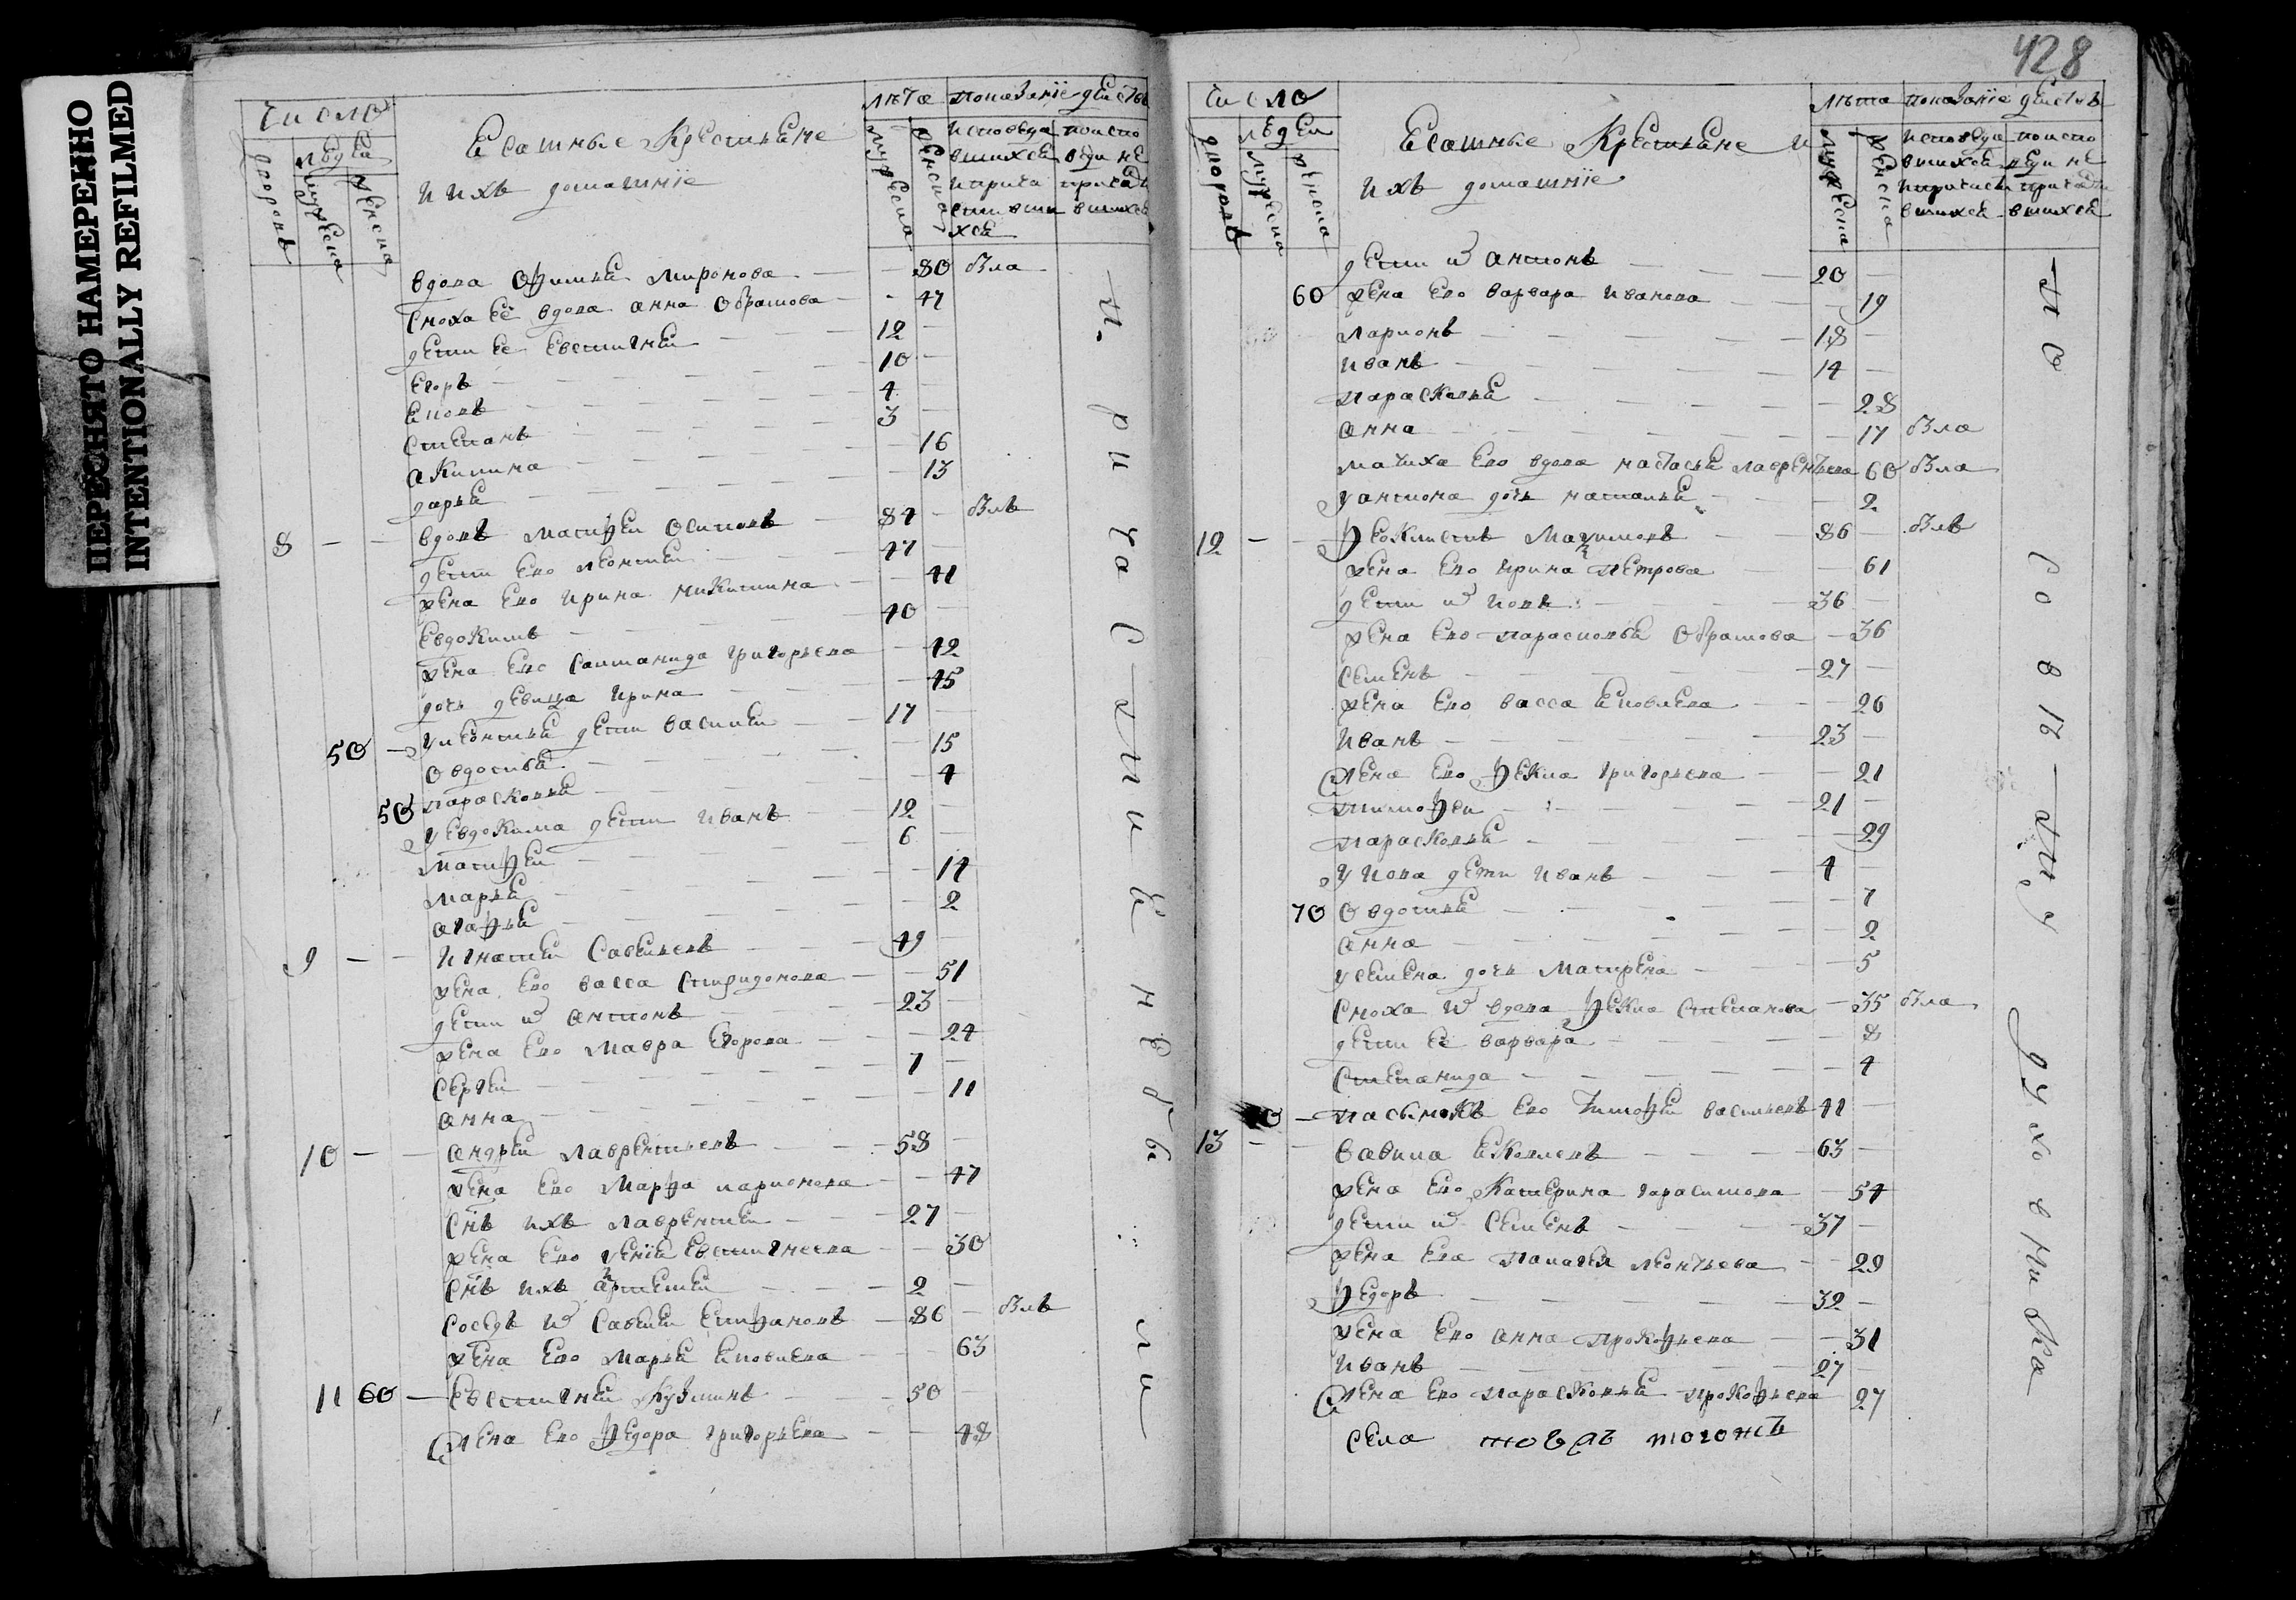 ПЕРЕСНЯТО НАМЕРЕННО
INTENTIONALLY REFILMED
число
людей
дворовъ
мужеска
женска
Ясашные Крестьяне
и ихъ домашнїе
лѣта
мужеска
женска
показанїе действъ
исповеда
вшихся
и прича
стивши
хся
по испо
веди не
причасти
вшихся
вдова Офимья Миронова 80 была
сноха ее вдова анна Обрамова 47
дети ее Евстигней 12
Егоръ 10
Яковъ 4
Степанъ 3
акилина 16
дарья 13
8 вдовъ Матфей Осиповъ 84 былъ
дети Ево леонтей 47
жена Ево Ирина микитина 41
Евдокимъ 40
жена Ево Саломанида григорьева 42
дочь девица Ирина 45
50 у леонтья дети василей 17
Овдотья 15
50 парасковья 4
у Евдокима дети иванъ 12
матфей 6
марья 14
агафья 2
9 Игнатей Савельевъ 49
жена Ево васса Спиридонова 51
дети и антонъ 23
жена Ево мавра Егорова 24
Сергей 7
анна 11
10 андрей лаврентьевъ 58
жена Ево марфа ларионова 47
Снъ ихъ лаврентей 27
жена Ево Евгнеева 30
Снъ ихъ артемей 2
Соседъ и Савелей Епифановъ 86 былъ
жена Ево марья яковлева 63
11 60 Евстигней Кузминъ 50
жена Ево федора григорьева 48
и
причастие не были
428
число
людей
дворовъ
мужеска
женска
Ясашные Крестьяне и
ихъ домашнїе
лѣта
мужеска
женска
показанїе действъ
исповеда
вшихся
и причасти
вшихся
по испо
веди не
причасти
вшихся
дети и антонъ 20
60 жена Ево варвара иванова 19
ларионъ 18
иванъ 14
парасковья 28
анна 17 была
мачиха Ево вдова настасья лаврентьева 60 была
у антона дочь наталья 2
12 феоктистъ Максимовъ 86 былъ
жена Ево Ирина петрова 61
дети и Иовъ 36
жена Ево парасковья Обрамова 36
Семенъ 27
жена Ево васса яковлева 26
иванъ 23
жена Ево фекла григорьева 21
тимофей 21
парасковья 29
у Иова дети иванъ 4
70 Овдотья 7
анна 2
у Семена дочь матрена 5
сноха и вдова фекла степанова 35 была
дети ее варвара 8
степанида 4
пасынокъ Ево тимофей васильевъ 41
13 вавила яковлевъ 63
жена Ево катерина гарасимова 54
дети и Семенъ 37
жена Ево палагея леонтьева 29
федоръ 32
жена Ево анна прокофьева 31
иванъ 27
жена Ево парасковья прокофьева 27
села тогожъ
духовника